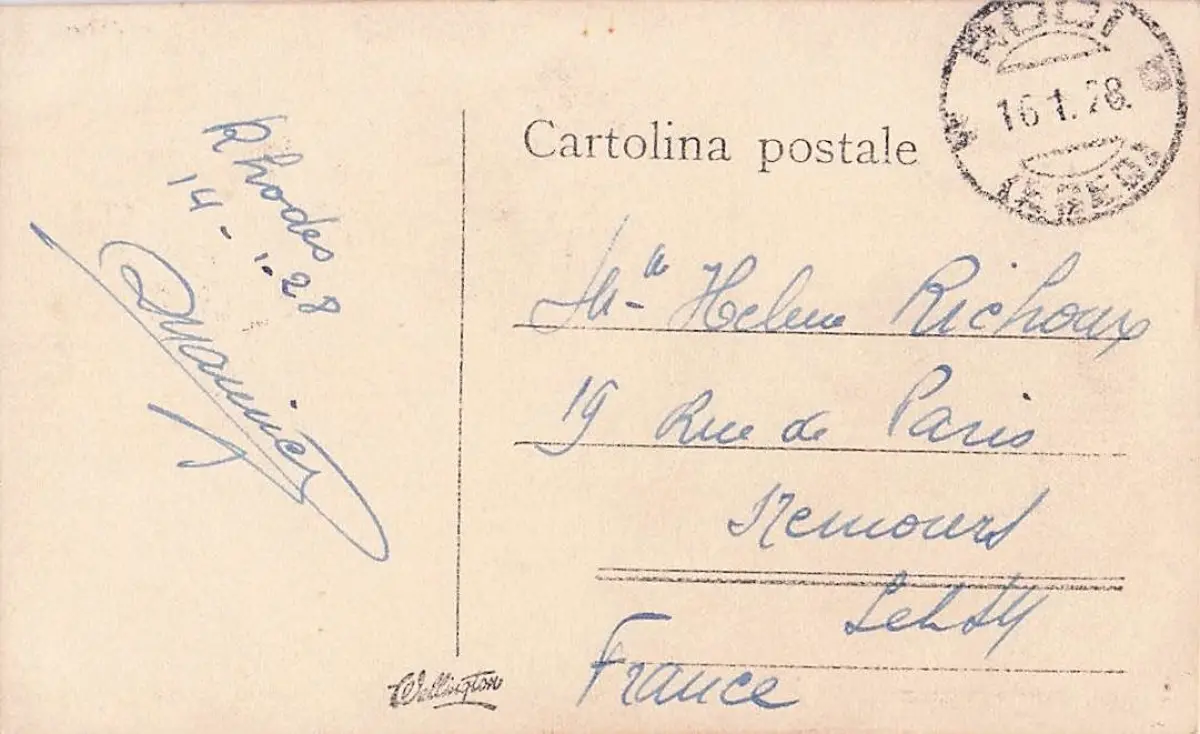 Rhodes
14-1-28
Cartolina postale
RODI
16 1.28.
(EGEO)
Mlle Helene Richoux
19 Rue de Paris
Nemours
France
Wellington